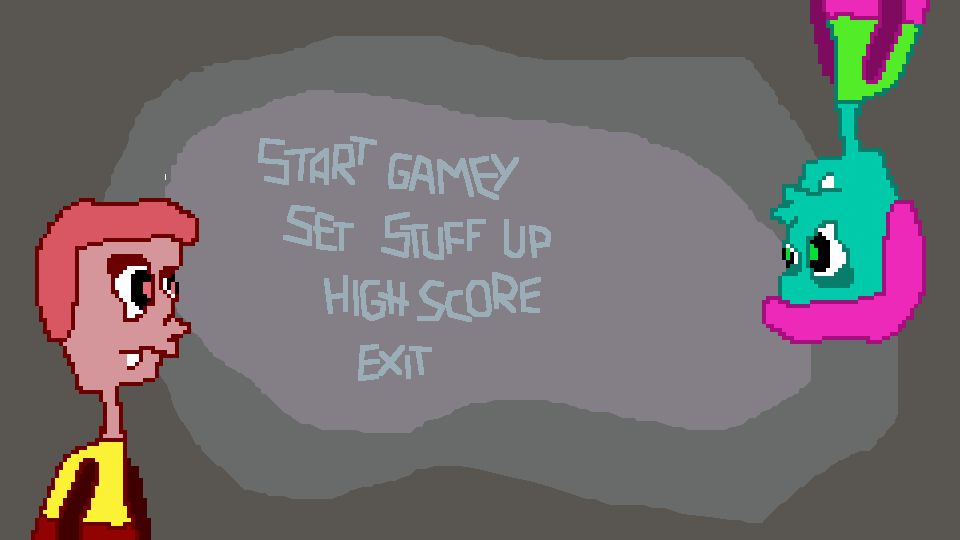 START GAMEY
SET STUFF UP
HIGH SCORE
EXIT